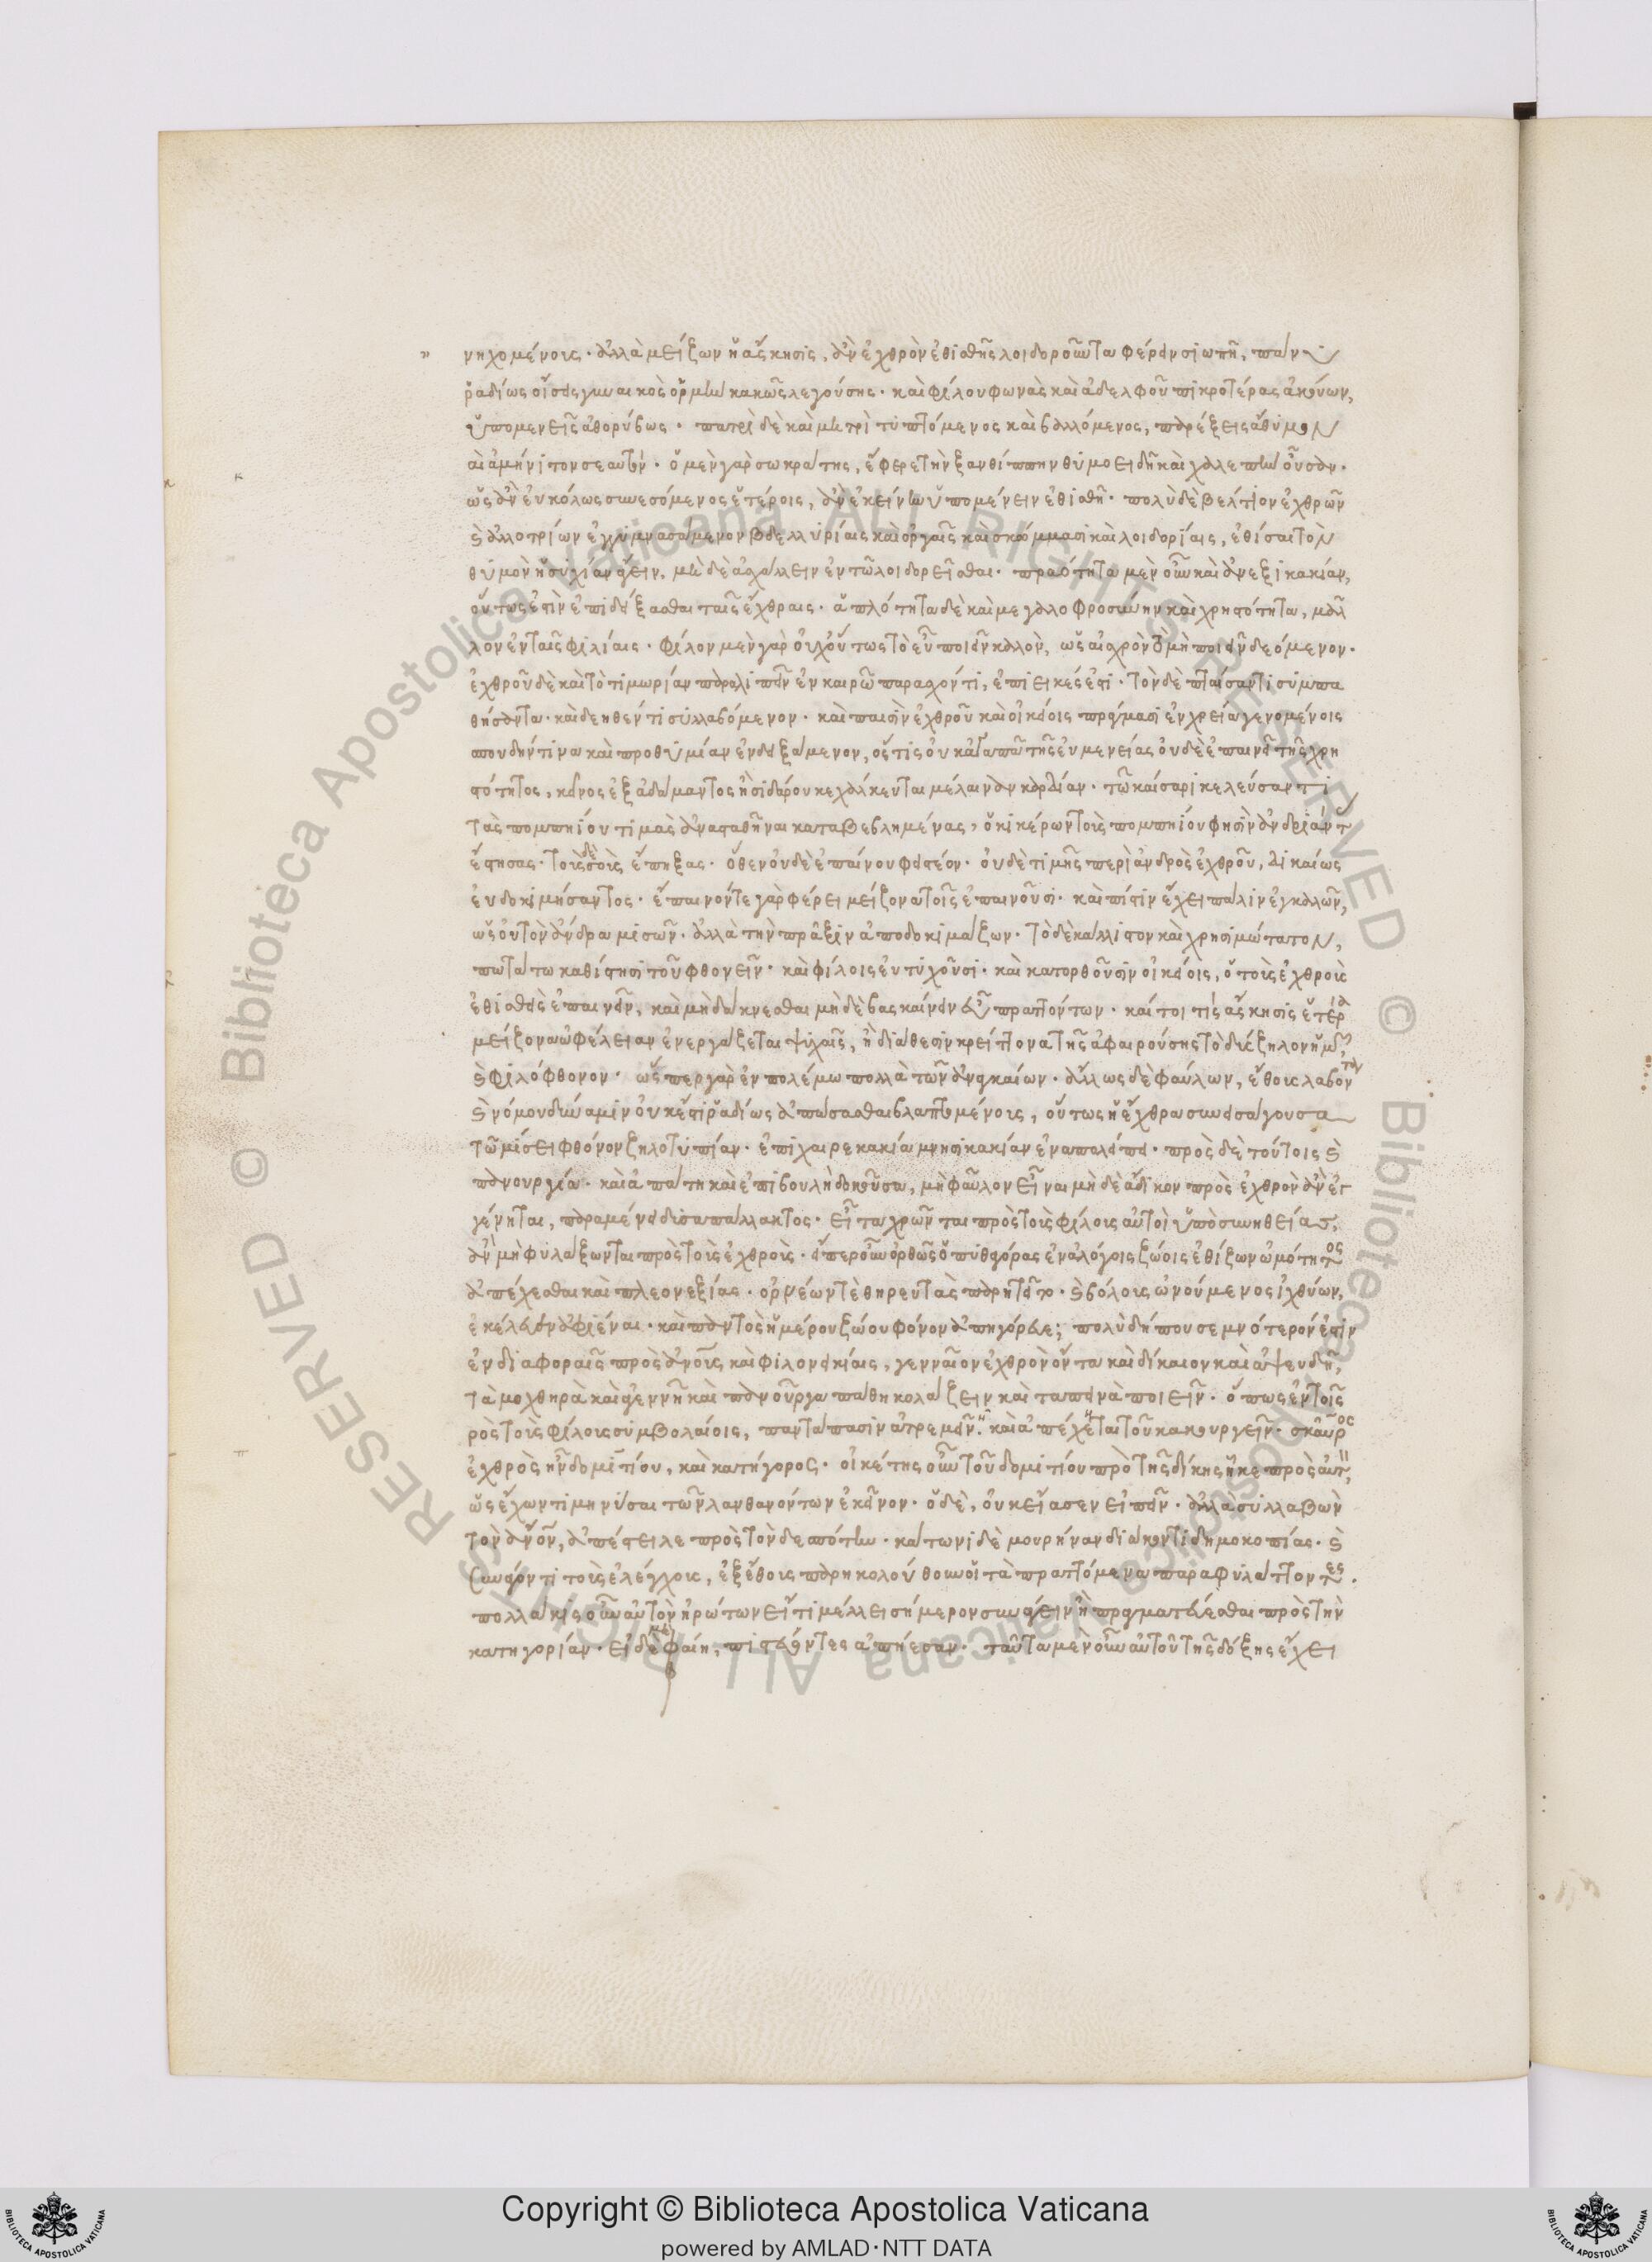 νηχομένοις· ἀλλὰ μείζων ἡ ἄσκησις, ἂν ἐχθρὸν ἐθισθῇς λοιδοροῦντα φέρειν σιωπῇ, πάνυ
ῥαδίως οἴσεις γυναικὸς ὁρμὴν κακῶς λεγούσης· καὶ φίλου φωνὰς καὶ ἀδελφοῦ πικροτέρας ἀκούων,
ὑπομενεῖς ἀθορύβως· πατρὶ δὲ καὶ μητρὶ τυπτόμενος καὶ βαλλόμενος, παρέξεις ἄθυμον
αἰ ἀμήνιτον σεαυτόν· ὁ μὲν γὰρ σωκράτης, ἔφερε τὴν ξανθίππην θυμοειδῆ καὶ χαλεπὴν οὖσαν·
ὡς ἂν εὐκόλως συνεσόμενος ἑτέροις, ἂν ἐκείνην ὑπομένειν ἐθισθῇ· πολὺ δὲ βέλτιον ἐχθρῶν
καὶ ἀλλοτρίων ἐγγυμνασάμενον βδελυρίαις καὶ ὀργαῖς καὶ σκώμμασι καὶ λοιδορίαις, ἐθίσαι τὸν
θυμὸν ἡσυχίαν ἄγειν, μὴ δὲ ἀσχάλλειν ἐν τῶ λοιδορεῖσθαι· πραότητα μὲν οὖν καὶ ἀνεξικακίαν,
οὕτως ἐστὶν ἐπιδείξασθαι ταῖς ἔχθραις· ἁπλότητα δὲ καὶ μεγαλοφροσύνην καὶ χρηστότητα, μᾶλ
λον ἐν ταῖς φιλίαις· φίλον μὲν γὰρ οὐχ οὕτως τὸ εὖ ποιεῖν καλὸν, ὡς αἰσχρὸν τὸ μὴ ποιεῖν δεόμενον·
ἐχθροῦ δὲ καὶ τὸ τιμωρίαν παραλιπεῖν ἐν καιρῶ παρασχόντι, ἐπιεικές ἐστι· τὸν δὲ πταίσαντι συμπα
θήσαντα· καὶ δεηθέντι συλλαβόμενον· καὶ παισὶν ἐχθροῦ καὶ οἰκείοις πράγμασι ἐν χρεία γενομένοις
σπουδήν τινα καὶ προθυμίαν ἐνδειξάμενον, ὅστις οὐκ ἀγαπᾶ τῆς εὐμενείας οὐδὲ ἐπαινεῖ τῆς χρη
στότητος, κεῖνος ἐξ ἀδάμαντος ἢ σιδάρου κεχάλκευται μέλαιναν καρδίαν· τῶ καίσαρι κελεύσαντι
τὰς πομπηίου τιμὰς ἀνασταθῆναι καταβεβλημένας, ὁ κικέρων τοὺς πομπηίου φησὶν ἀνδριάντ
ἔστησας· τοὺς δὲ σοὺς ἔπηξας· ὅθεν οὐδὲ ἐπαίνου φειστέον· οὐδὲ τιμῆς περὶ ἀνδρὸς ἐχθροῦ, δικαίως
εὐδοκιμήσαντος· ἔπαινόν τε γὰρ φέρει μείζονα τοῖς ἐπαινοῦσι· καὶ πίστιν ἔχει πάλιν ἐγκαλῶν,
ὡς οὐ τὸν ἄνδρα μισῶν· ἀλλὰ τὴν πρᾶξιν ἀποδοκιμάζων· τὸ δὲ κάλλιστον καὶ χρησιμώτατον,
πω τάτω καθίστησι τοῦ φθονεῖν· καὶ φίλοις εὐτυχοῦσι· καὶ κατορθοῦσιν οἰκείοις, ὁ τοὺς ἐχθροὺς
ἐθισθεὶς ἐπαινεῖν, καὶ μὴ δάκνεσθαι μὴ δὲ βασκαίνειν εὖ πραττόντων· καί τοι τίς ἄσκησις ἑτέρα
μείζονα ὠφέλειαν ἐνεργάζεται ψυχαῖς, ἢ διάθεσιν κρείττονα τῆς ἀφαιρούσης τὸ δύσζηλον ἡμῶν,
καὶ φιλόφθονον· ὥσπερ γὰρ ἐν πολέμω πολλὰ τῶν ἀναγκαίων· ἄλλως δὲ φαύλων, ἔθους λαβόντων
καὶ νόμου δύναμιν οὐκ ἔστι ῥαδίως ἀπώσασθαι βλαπτομένοις, οὕτως ἡ ἔχθρα συνεισάγουσα
τῶ μίσει φθόνον ζηλοτυπίαν· ἐπιχαιρεκακία μνησικακίαν ἐναπολείπει· πρὸς δὲ τούτοις καὶ
πανουργία· καὶ ἀπάτη καὶ ἐπιβουλὴ δοκοῦσα, μὴ φαῦλον εἶναι μὴ δὲ ἄδικον πρὸς ἐχθρὸν ἂν ἐγ
γένηται, παραμένει δυσαπάλλακτος· εἶτα χρῶνται πρὸς τοὺς φίλοις αὐτοὶ ὑπὸ συνηθείας,
ἂν μὴ φυλάξωνται πρὸς τοὺς ἐχθροὺς· εἴπερ οὖν ὀρθῶς ὁ πυθαγόρας ἐν ἀλόγοις ζώοις ἐθίζων ὠμότητος
ἀπέχεσθαι καὶ πλεονεξίας· ὀρνέων τὲ θηρευτὰς παρῃτεῖτο· καὶ βόλους ὠνούμενος ἰχθύων,
ἐκέλευεν ἀφιέναι· καὶ παντὸς ἡμέρου ζώου φόνον ἀπηγόρευε; πολὺ δήπου σεμνότερον ἐστὶν
ἐν διαφοραῖς πρὸς ἀνοὺς καὶ φιλονεικίαις, γενναῖον ἐχθρὸν ὄντα καὶ δίκαιον καὶ ἀψευδῆ,
τὰ μοχθηρὰ καὶ ἀγεννῆ καὶ πανοῦργα πάθη κολάζειν καὶ ταπεινὰ ποιεῖν· ὅπως ἐν τοῖς
ρὸς τοὺς φίλους συμβολαίοις, παντάπασιν ἀτρεμεῖν· καὶ ἀπέχηται τοῦ κακουργεῖν· σκαῦρος
ἐχθρὸς ἦν δομιτίου, καὶ κατήγορος· οἰκέτης οὖν τοῦ δομιτίου πρὸ τῆς δίκης ἧκε πρὸς αὐτ,
ὡς ἔχων τι μηνύσαι τῶν λανθανόντων ἐκεῖνον· ὁ δὲ, οὐκ εἴασεν εἰπεῖν· ἀλλὰ συλλαβὼν
τὸν ἄνον, ἀπέστειλε πρὸς τὸν δεσπότην· κάτωνι δὲ μουρήναν διώκοντι δημοκοπίας· καὶ
συνάγοντι τοὺς ἐλέγχους, ἐξ ἔθους παρηκολούθουν οἱ τὰ πραττόμενα παραφυλάττοντες.
πολλάκις οὖν αὐτὸν ἠρώτων εἴ τι μέλλει σήμερον συνάγειν ἢ πραγματεύεσθαι πρὸς τὴν
κατηγορίαν· εἰ δὲ μὴ φαίη, πιστεύοντες ἀπήεσαν· ταῦτα μὲν οὖν αὐτοῦ τῆς δόξης ἔχει
Copyright © Biblioteca Apostolica Vaticana
powered by AMLAD·NTT DATA